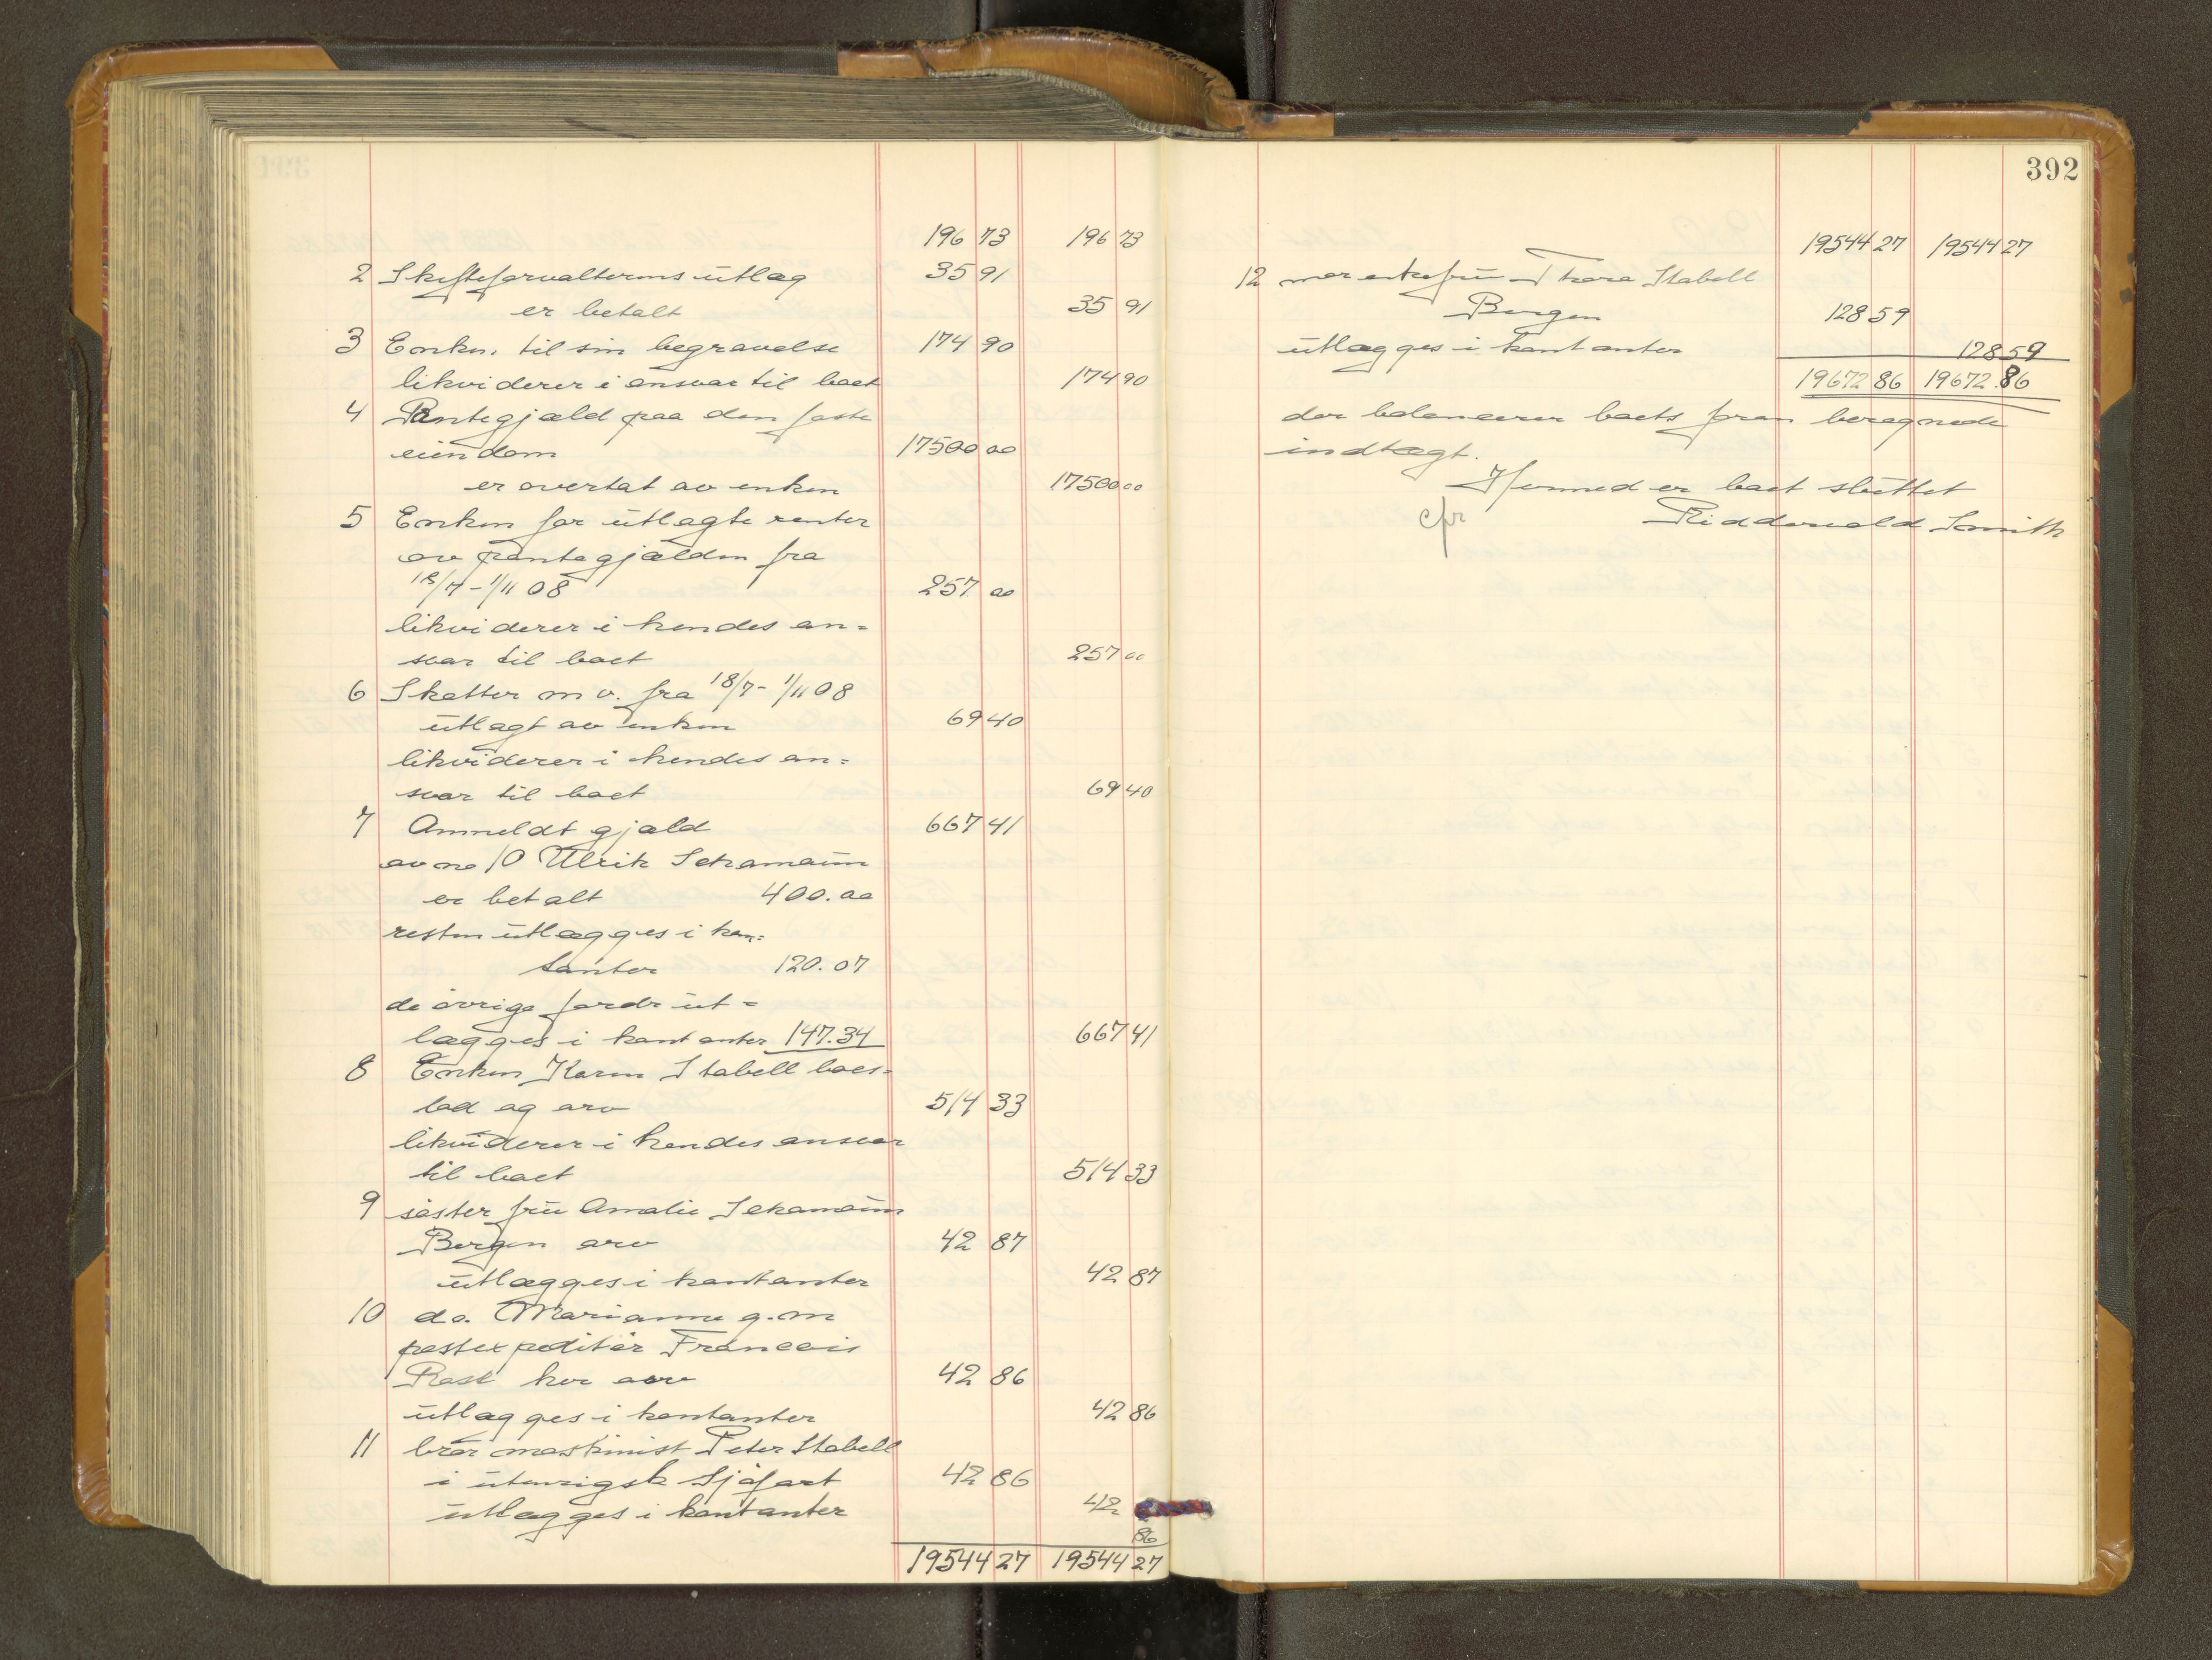 196 73 196 73
2 Skifteforvalterens utlæg 35 91
er betalt 35 91
3 Enken til sin begravelse 174 90
likviderer i ansvar til boet 174 90
4 Pantegjæld paa den faste
eiendom 17500 00
er overtat av enken 17500 00
5 Enken for utlagte renter
av pantegjælden fra
18/7 - 1/11 08 257 00
likviderer i hendes an=
svar til boet 257 00
6 Skatter m v. fra 18/7 - 1/11 08
utlagt av enken 69 40
likviderer i hendes an=
svar til boet 69 40
7 Anmeldt gjæld 667 41
av no 10 Ulrik Schamaun
er betalt 400.00
resten utlægges i kon=
tanter 120.07
de øvrige fordr ut=
lægges i kontanter 147.34 667 41
8 Enken Karen Stabell boes=
lod og arv 514 33
likviderer i hendes ansvar
til boet 514 33
9 søster fru Amalie Schamaun
Bergen arv 42 87
utlægges i kontanter 42 87
10 do. Marianne g. m
postexpeditør Francois
Rast her arv 42 86
utlægges i kontanter 42 86
11 bror maskinist Peter Stabell
i utenrigsk Sjøfart 42 86
utlægges i kontanter 42
86
19544 27 19544 27
392
19544 27 19544 27
12 mor enkefru Thora Stabell
Bergen 128 59
utlægges i kontanter 128 59
19672 86 19672.86
der balancerer boets foran beregnede
indtægt.
Hermed er boet sluttet
cfr Ridderwold Smith